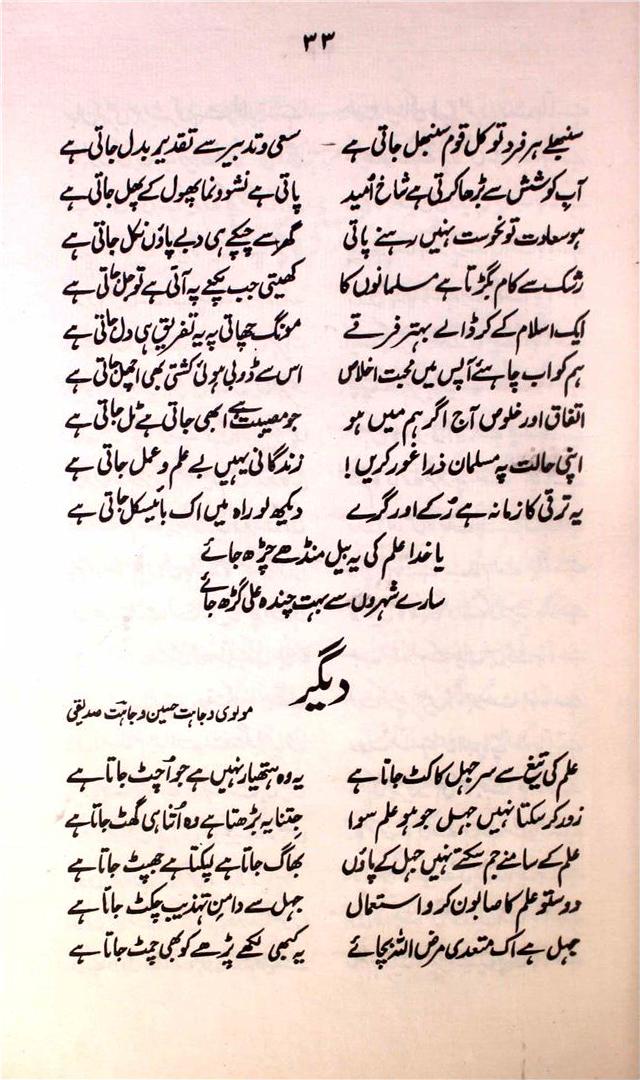 ۳۳
سنبھلے ہر فرد تو کل قوم سنبھل جاتی ہے سعی و تدبیر سے تقدیر بدل جاتی ہے
آپ کوشش سے بڑھا کرتی ہے شاخ اُمید پاتی ہے نشو و نما پھول کے پھل جاتی ہے
ہو سعادت تو نحوست نہیں رہنے پاتی گھر سے چپکے ہی دبے پاؤں نکل جاتی ہے
رشک سے کام بگڑتا ہے مسلمانوں کا کھیتی جب پکنے پہ آتی ہے تو جل جاتی ہے
ایک اسلام کے کر ڈالے بہتر فرقے مونگ چھاتی پہ یہ تفریق ہی دل جاتی ہے
ہم کو اب چاہئے آپس میں محبت اخلاص اس سے ڈوبی ہوئی کشتی بھی اچھل جاتی ہے
اتفاق اور خلوص آج اگر ہم میں ہو جو مصیبت ہے ابھی جاتی ہے ٹل جاتی ہے
اپنی حالت پہ مسلمان ذرا غور کریں ! زندگانی یہیں بے علم و عمل جاتی ہے
یہ ترقی کا زمانہ ہے رُکے اور گرے دیکھ لو راہ میں اک بائیسکل جاتی ہے
یا خدا علم کی یہ بیل منڈھے چڑھ جائے
سارے شہروں سے بہت چندہ علی گڑھ جائے
دیگر
مولوی وجاہت حسین وجاہت صدیقی
علم کی تیغ سے سر جہل کا کٹ جاتا ہے یہ وہ ہتھیار نہیں ہے جو اُچٹ جاتا ہے
زور کر سکتا نہیں جہل جو ہو علم سوا جتنا یہ بڑھتا ہے وہ اُتنا ہی گھٹ جاتا ہے
علم کے سامنے جم سکتے نہیں جہل کے پاؤں بھاگ جاتا ہے لپکتا ہے جھپٹ جاتا ہے
دوستو علم کا صابون کرو استعمال جہل سے دامن تہذیب چکٹ جاتا ہے
جہل ہے اک متعدی مرض اللہ بچائے یہ کبھی لکھے پڑھے کو بھی چمٹ جاتا ہے